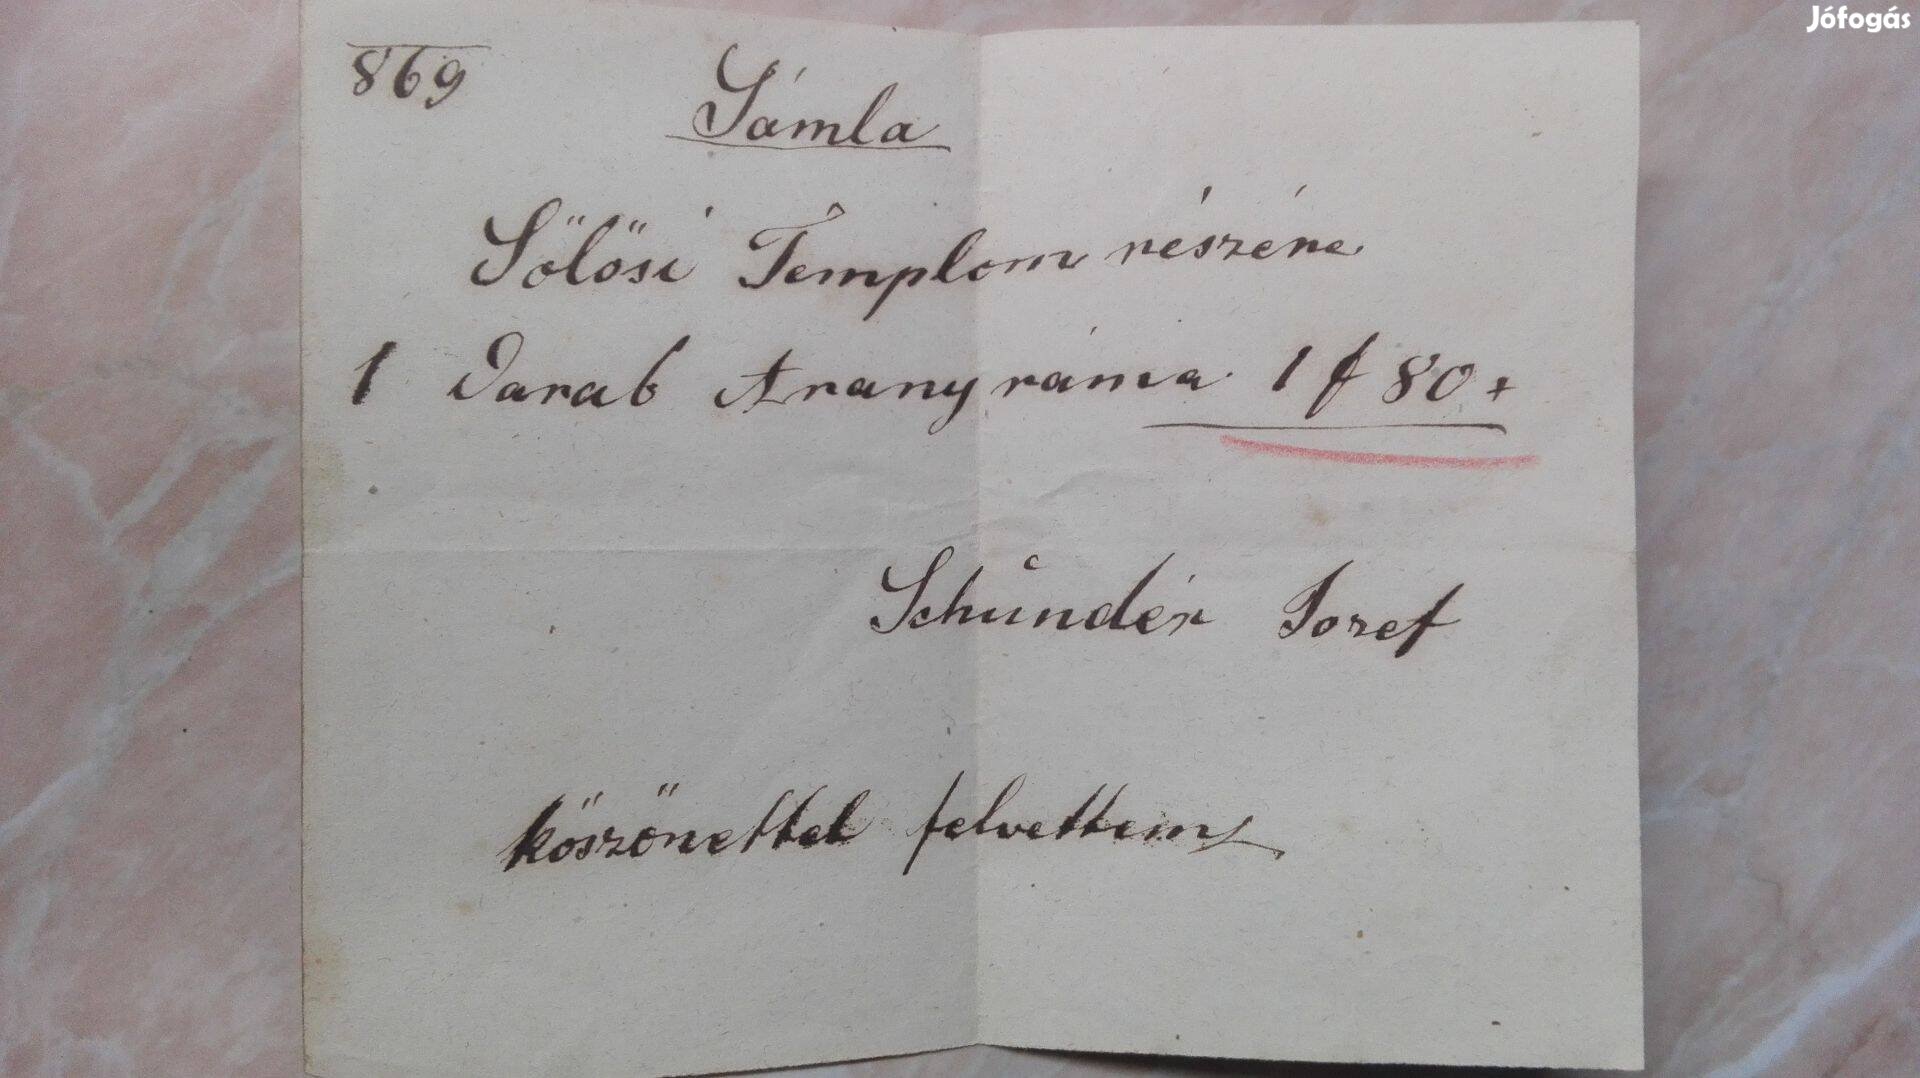 Jófogás
869
Sámla
Sőlősi Templom részére
1 Darab Arany ráma 1 f 80 x
Schünder Iozef
köszönettel felvettem